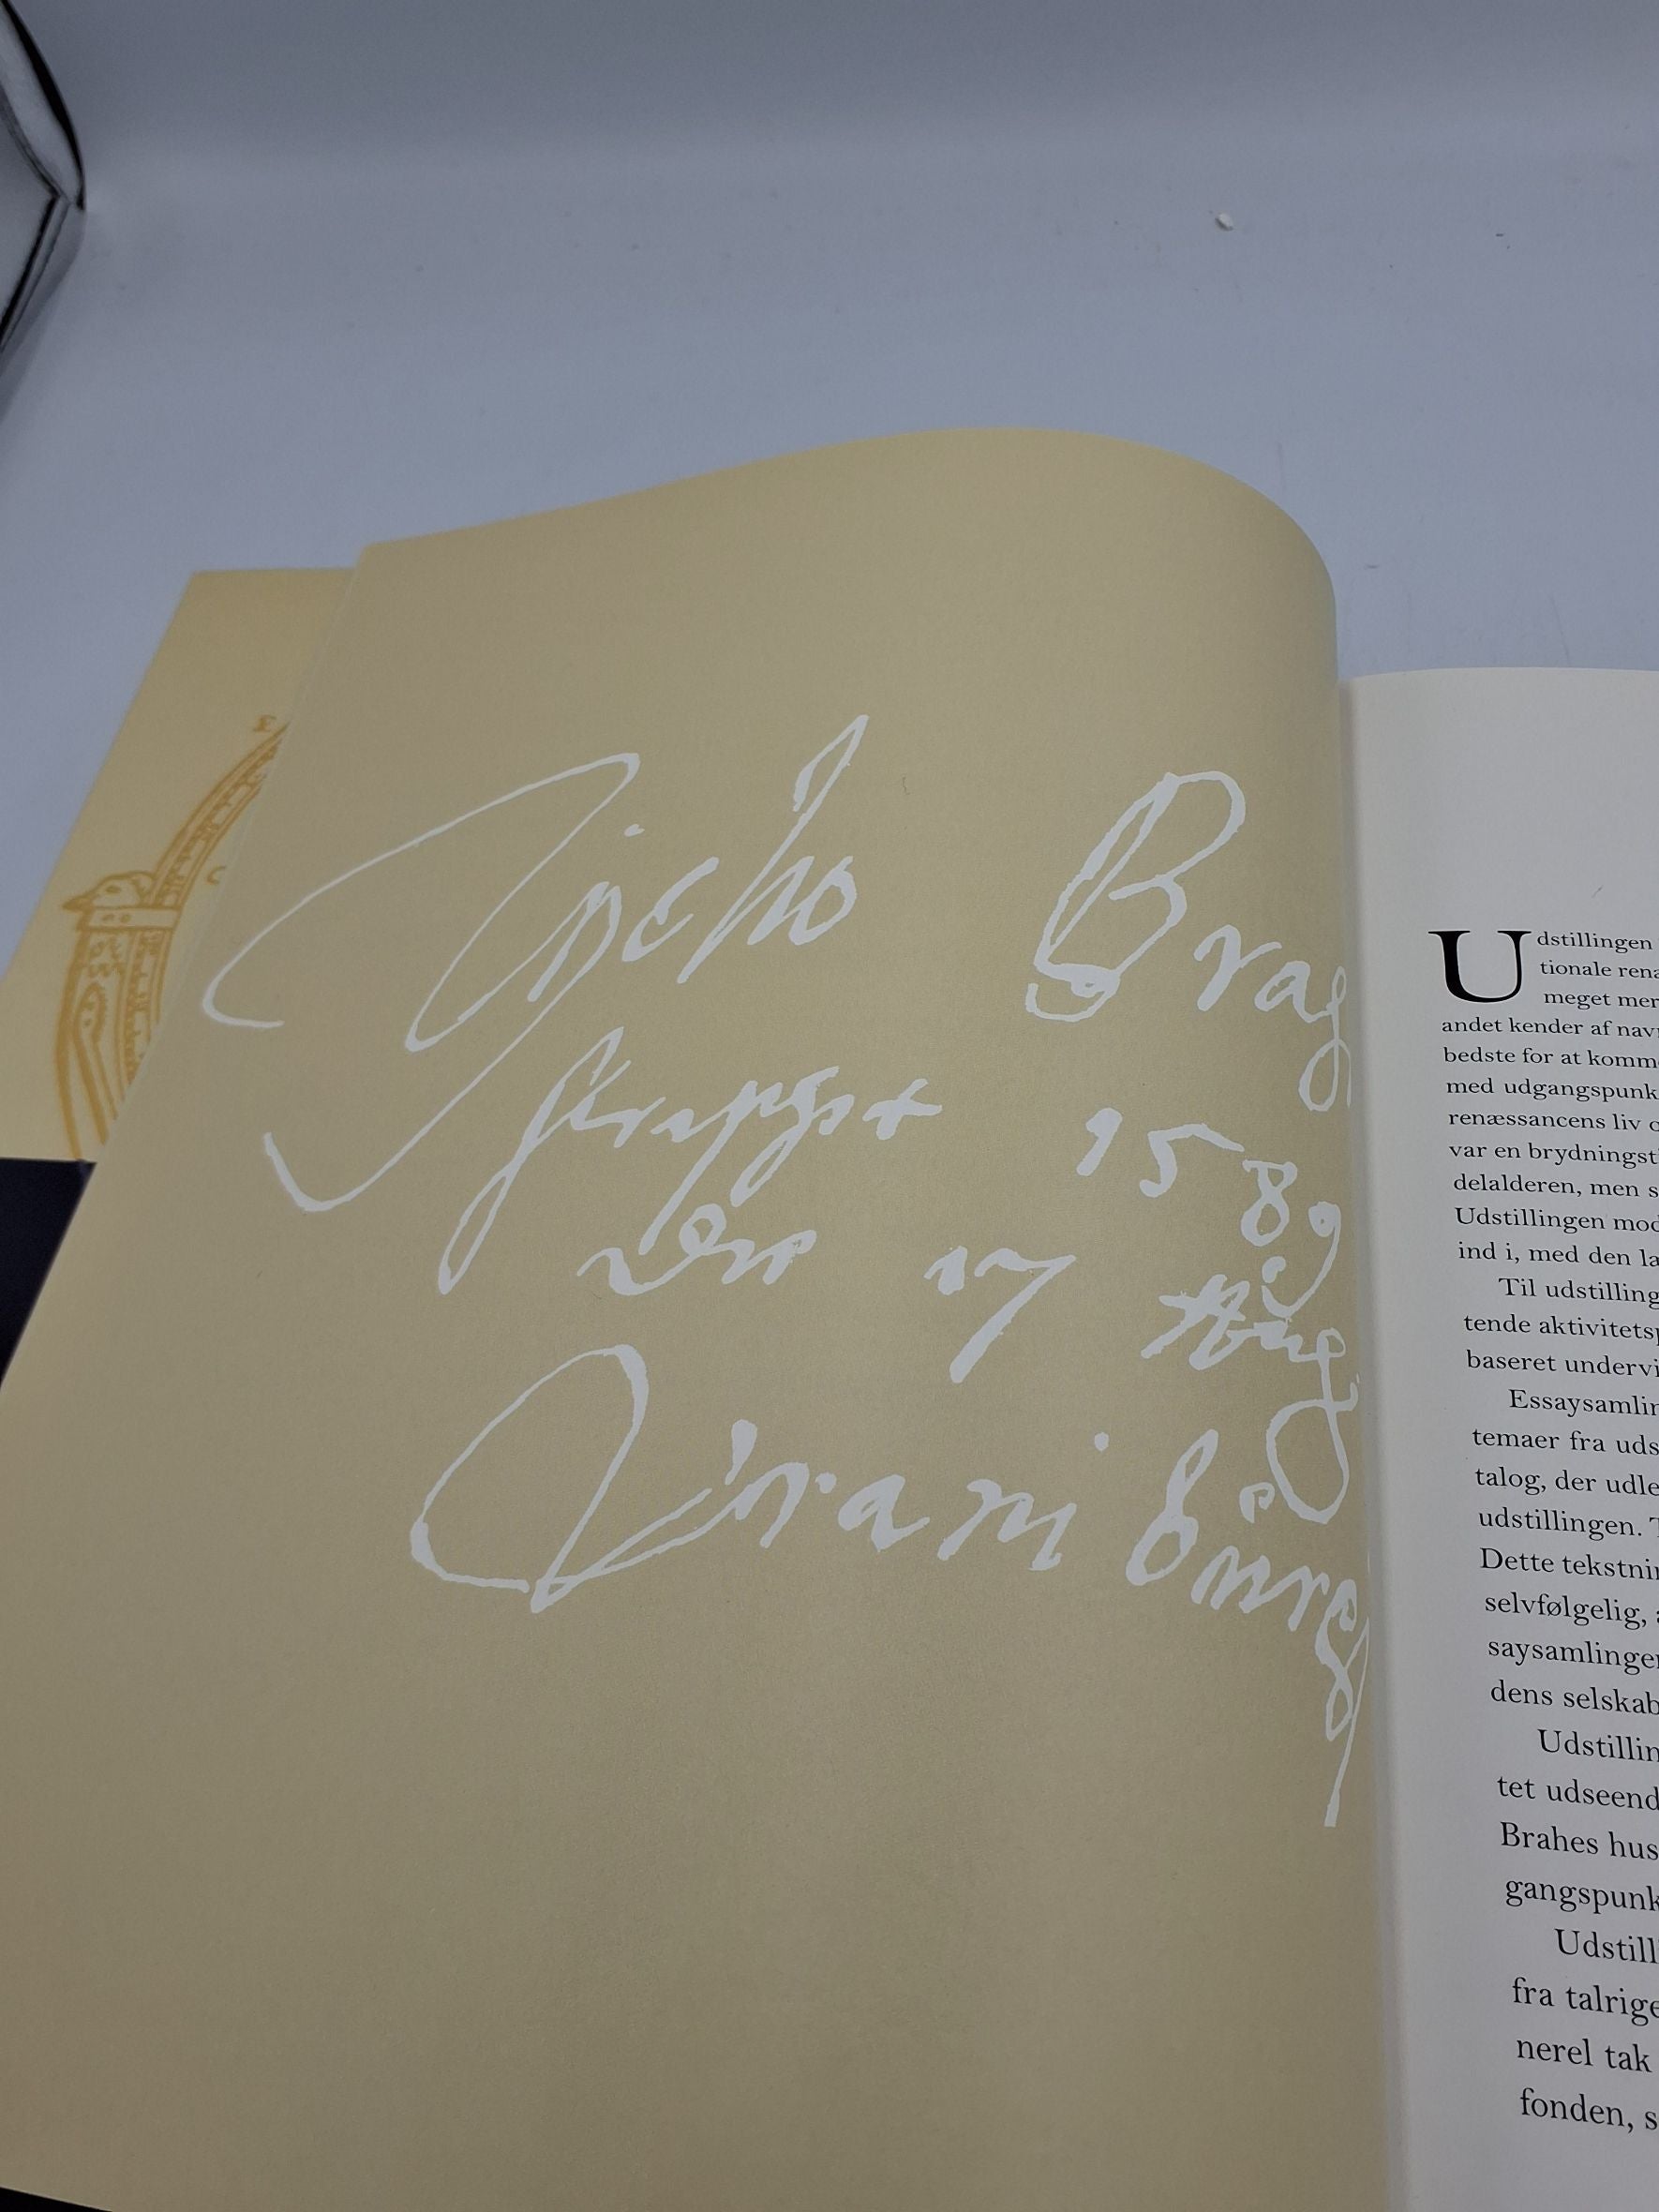 Tÿcho Brag
skreffet 1589
den 17 Aug
Vraniburg
E
C
Udstillingen
tionale rena
meget mer
andet kender af nav
bedste for at komm
med udgangspunk
renæssancens liv o
var en brydningst
delalderen, men s
Udstillingen mod
ind i, med den la
Til udstilling
tende aktivitetsp
baseret undervi
Essaysamlin
temaer fra uds
talog, der udle
udstillingen. T
Dette tekstnin
selvfølgelig, a
saysamlingen
dens selskab
Udstillin
tet udseend
Brahes hus
gangspunk
Udstill
fra talrige
nerel tak
fonden, s